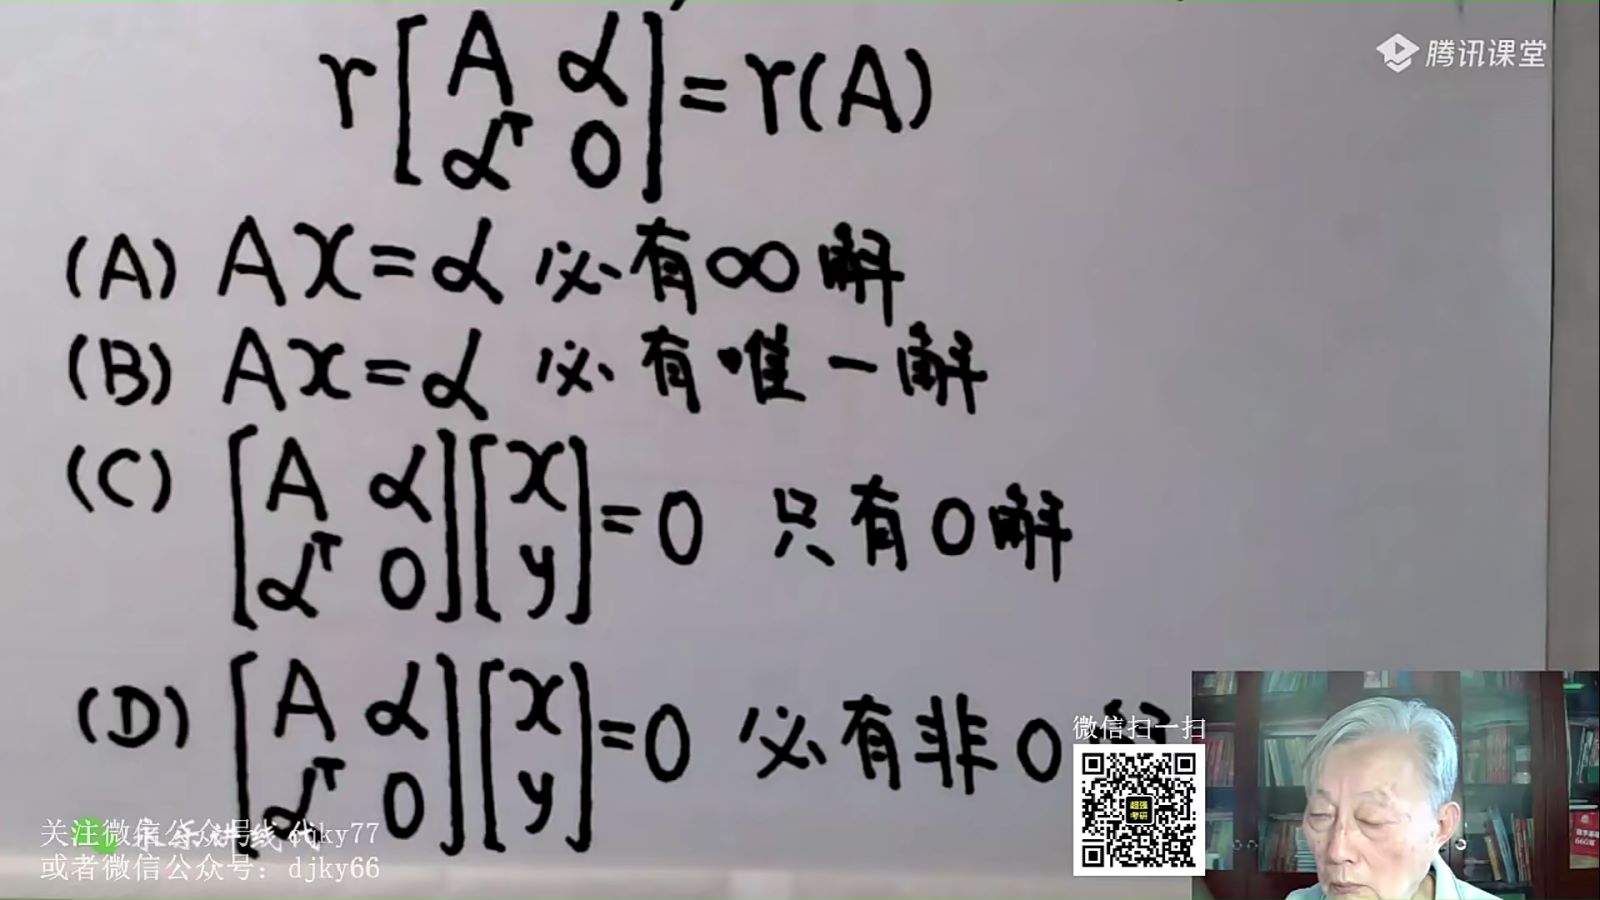 腾讯课堂
r[A α; αᵀ 0]=r(A)
(A) Ax=α 必有∞解
(B) Ax=α 必有唯一解
(C) [A α; αᵀ 0][x; y]=0 只有0解
(D) [A α; αᵀ 0][x; y]=0 必有非0
微信扫一扫
超强
考研
关注微信公众号：djky77
或者微信公众号：djky66